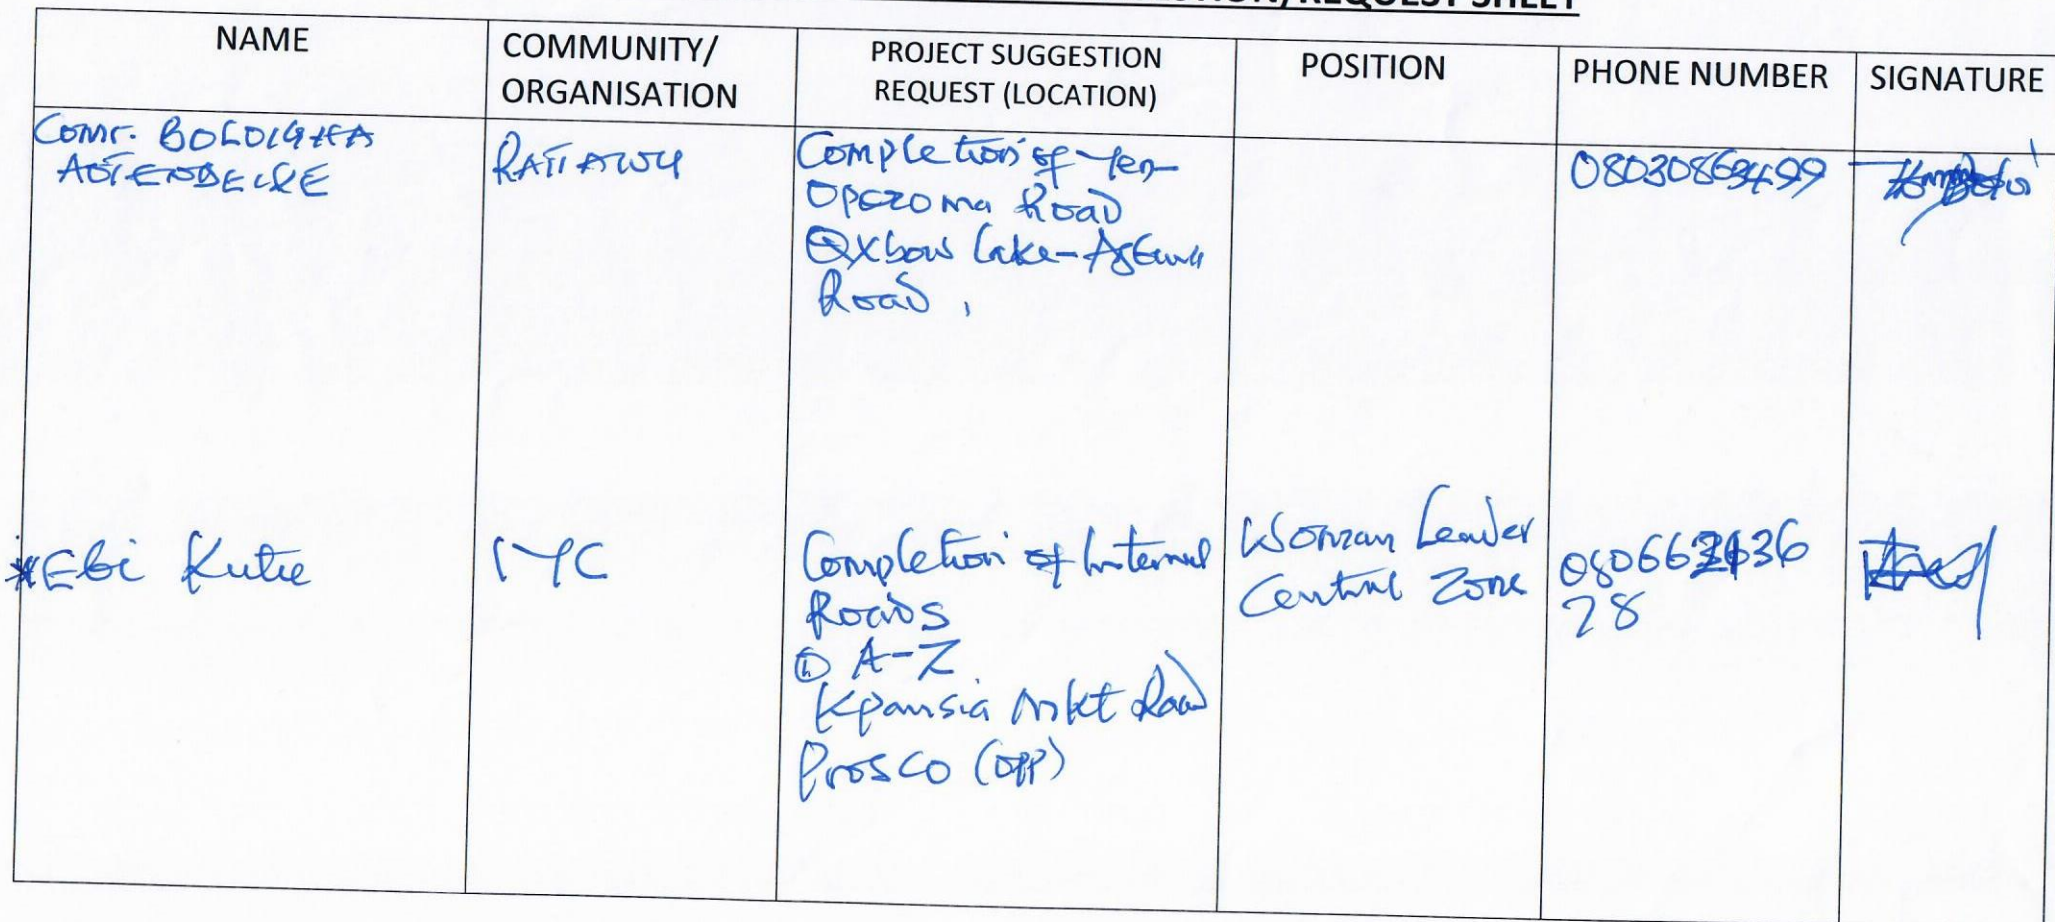 /REQUEST SHEET
NAME
COMMUNITY/
ORGANISATION
PROJECT SUGGESTION
REQUEST (LOCATION)
POSITION
PHONE NUMBER
SIGNATURE
Comr. BOLOIGHA
Completion of Yen-
Opozoma Road
Oxbow Lake-
Road,
Ebi Kutie
IYC
Completion of Internal
Roads
① A-Z
Kpansia Mkt Road
Prosco (opp)
Woman Leader
Central Zone
28